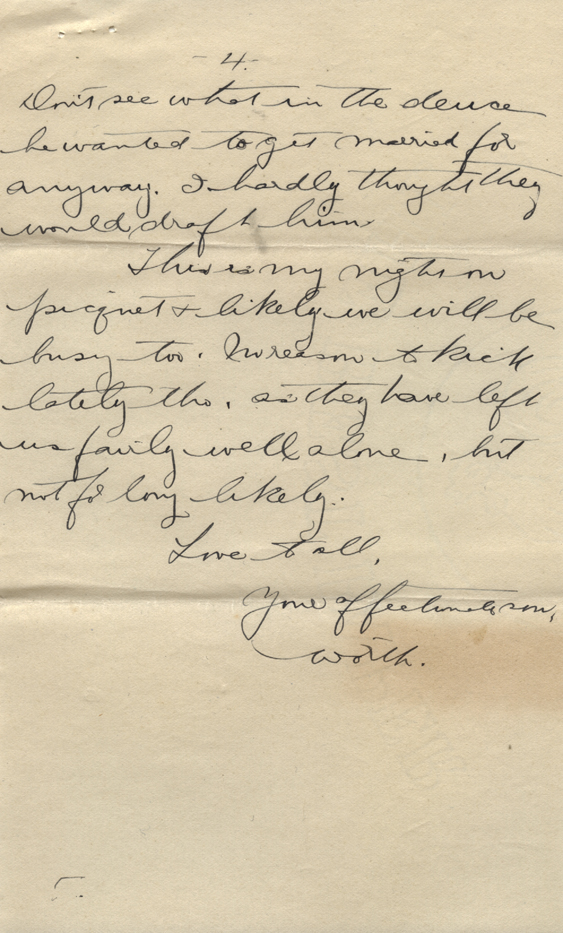 - 4 -
Don't see what in the deuce
he wanted to get married for
anyway. I hardly thought they
would draft him
This is my night on
picquet & likely we will be
busy too. No reason to kick
lately tho, as they have left
us fairly well alone, but
not for long likely.
Love to all,
Your affectionate son,
Worth.